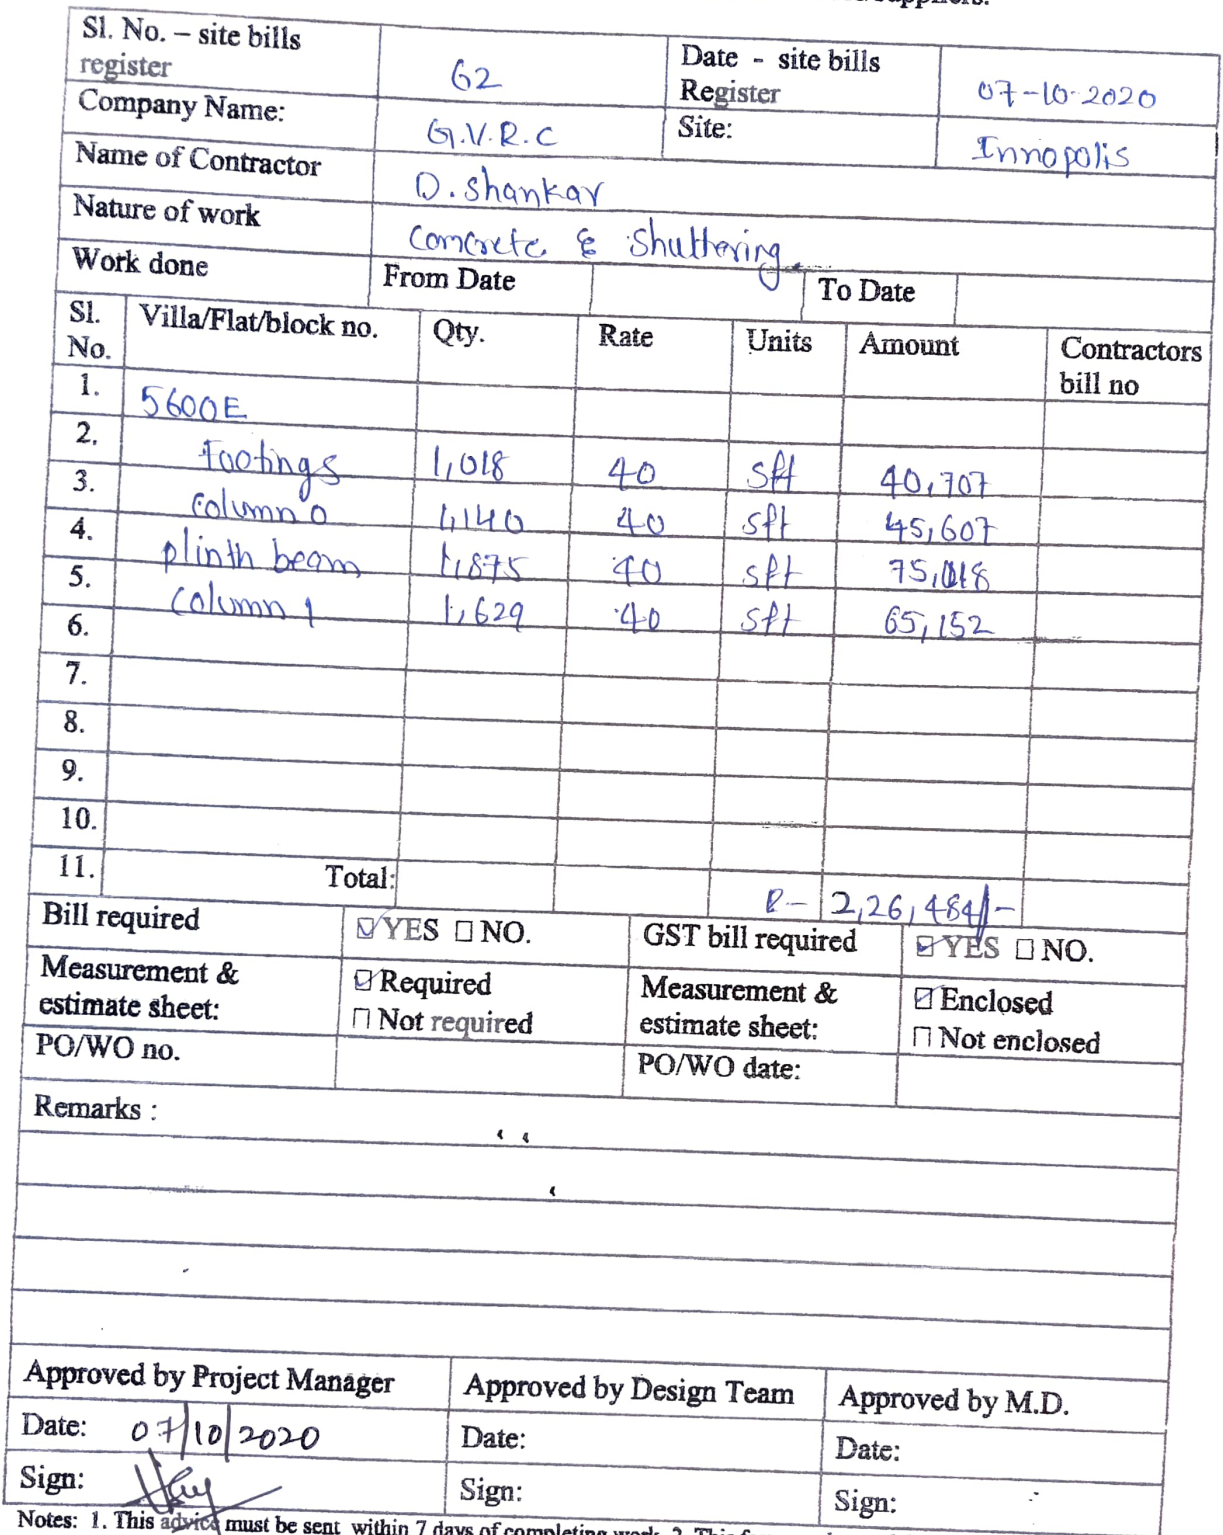 suppliers.
Sl. No. – site bills register 62 Date - site bills Register 07-10-2020
Company Name: G.V.R.C Site: Innopolis
Name of Contractor D. Shankar
Nature of work Concrete & Shuttering
Work done From Date To Date
Sl. No. Villa/Flat/block no. Qty. Rate Units Amount Contractors bill no
1. 5600E
2. Footings 1,018 40 sft 40,707
3. Column 0 1,140 40 sft 45,607
4. plinth beam 1,875 40 sft 75,018
5. Column 1 1,629 40 sft 65,152
6.
7.
8.
9.
10.
11. Total: 2,26,484/-
Bill required YES NO. GST bill required YES NO.
Measurement & estimate sheet: Required Not required Measurement & estimate sheet: Enclosed Not enclosed
PO/WO no. PO/WO date:
Remarks :
Approved by Project Manager Approved by Design Team Approved by M.D.
Date: 07/10/2020 Date: Date:
Sign: Sign: Sign:
Notes: 1. This advice must be sent within 7 days of completing work. 2. This